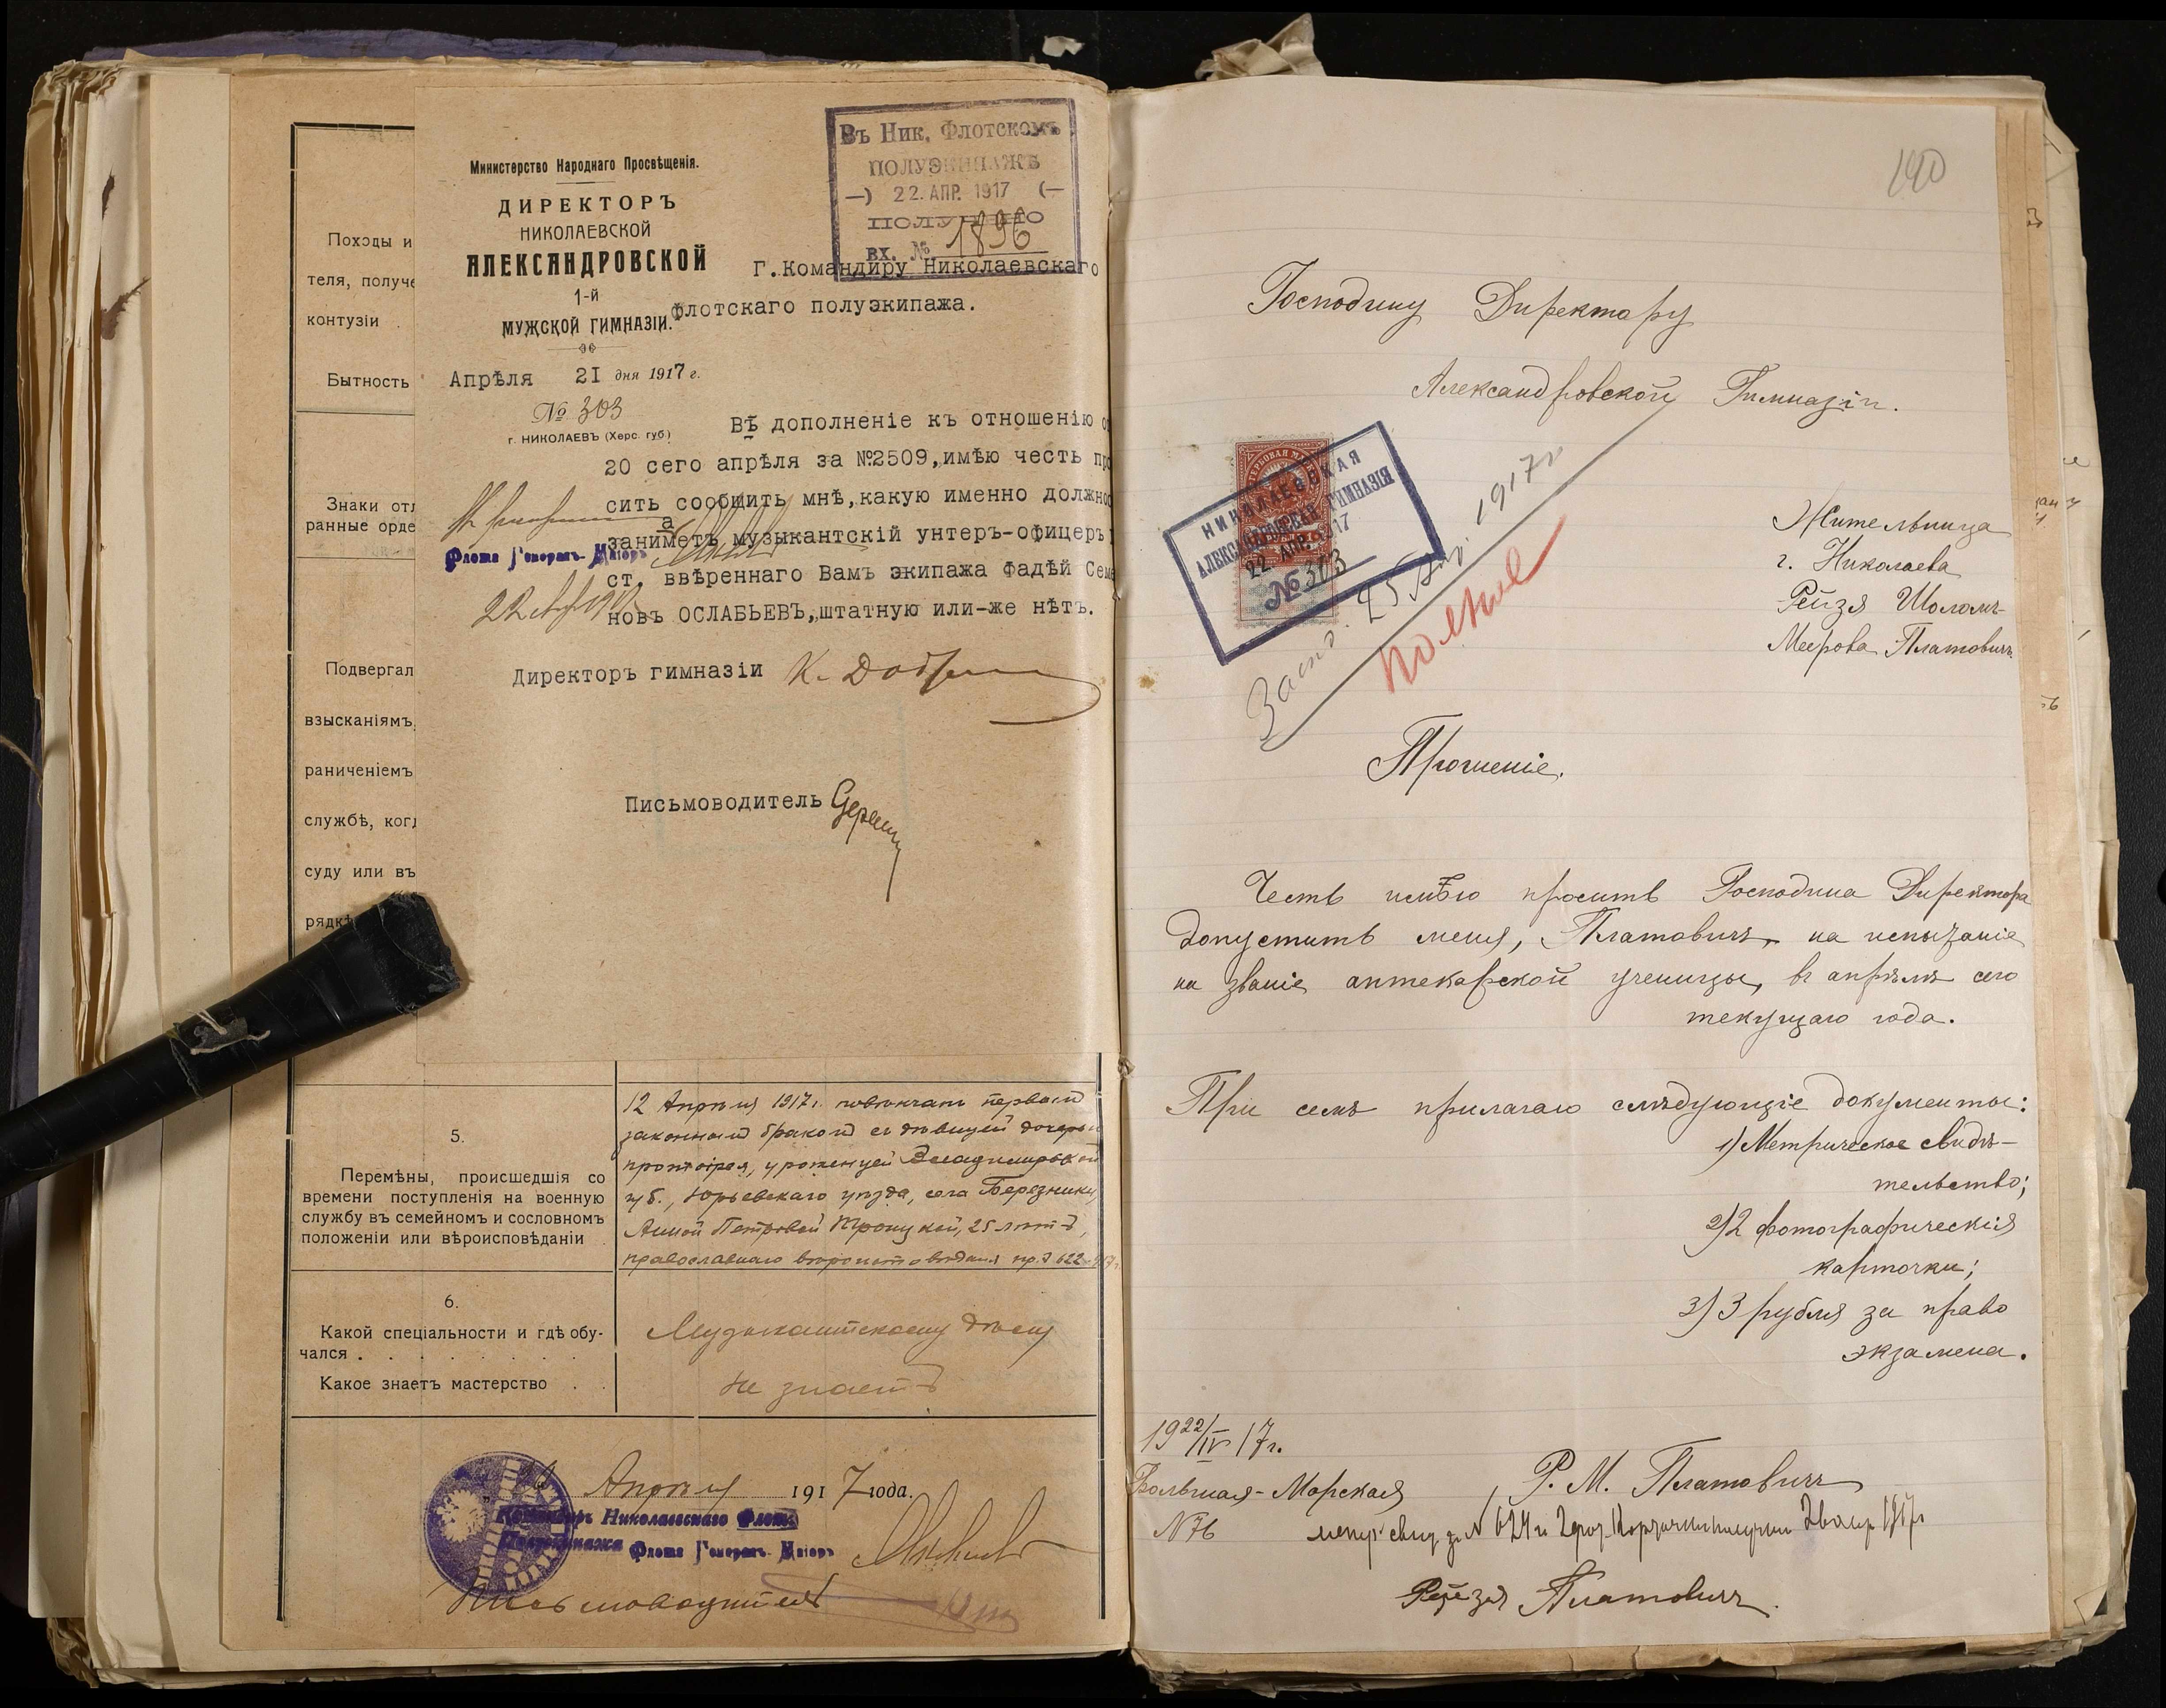 Походы и
теля, получе
контузіи
Бытность
Знаки отл
ранные орде
Подвергал
взысканіямъ,
раниченіемъ
службѣ, когд
суду или въ
рядкѣ
Министерство Народнаго Просвѣщенія.
ДИРЕКТОРЪ
НИКОЛАЕВСКОЙ
АЛЕКСАНДРОВСКОЙ
1-й
МУЖСКОЙ ГИМНАЗІИ.
Апрѣля 21 дня 1917 г.
№ 303
г. НИКОЛАЕВЪ (Херс. губ)
Въ Ник. Флотскомъ
ПОЛУЭКИПАЖѢ
22. АПР. 1917
ПОЛУЧЕНО
ВХ. № 1896
Г.Командиру Николаевскаго
Флотскаго полуэкипажа.
Въ дополненіе къ отношенію о
20 сего апрѣля за №2509,имѣю честь про
сить сообщить мнѣ,какую именно должнос
занимаетъ музыкантскій унтеръ-офицеръ
ст. ввѣреннаго Вамъ экипажа Фадѣй Семе
новъ ОСЛАБЬЕВЪ,штатную или-же нѣтъ.
Флота Генералъ-Маіоръ
Директоръ гимназіи
Письмоводитель
5.
Перемѣны, происшедшія со
времени поступленія на военную
службу въ семейномъ и сословномъ
положеніи или вѣроисповѣданіи
12 Апрѣля 1917 г. повѣнчанъ первымъ
законнымъ бракомъ съ дѣвицей дочерью
протоіерея, уроженцей Владимирской
губ., Юрьевскаго уѣзда, села Березники
Анной Петровой Троицкой, 25 лѣтъ,
православнаго вѣроисповѣданія пр. № 622
6.
Какой спеціальности и гдѣ обу-
чался . . . . . . .
Музыкантскому дѣлу
Какое знаетъ мастерство . .
Не знаетъ
Апрѣля 1917 года.
Командиръ Николаевскаго Флот.
Полуэкипажа Флота Генералъ-Маіоръ
Письмоводитель
140
Господину Директору
Александровской Гимназіи.
НИКОЛАЕВСКАЯ
АЛЕКСАНДРОВСКАЯ ГИМНАЗІЯ
22 АПР. 1917
№ 303
25 Апр. 1917 г.
Жительница
г. Николаева
Рейзя Шоломъ-
Меерова Платовичъ
Прошеніе.
Честь имѣю просить Господина Директора
допустить меня, Платовичъ, на испытаніе
на званіе аптекарской ученицы, въ апрѣлѣ сего
текущаго года.
При семъ прилагаю слѣдующіе документы:
1) Метрическое свидѣ-
тельство;
2) 2 фотографическія
карточки;
3) 3 рубля за право
экзамена.
19 22/IV 17 г.
Большая-Морская
N 76
Р. М. Платовичъ
Рейзя Платовичъ.